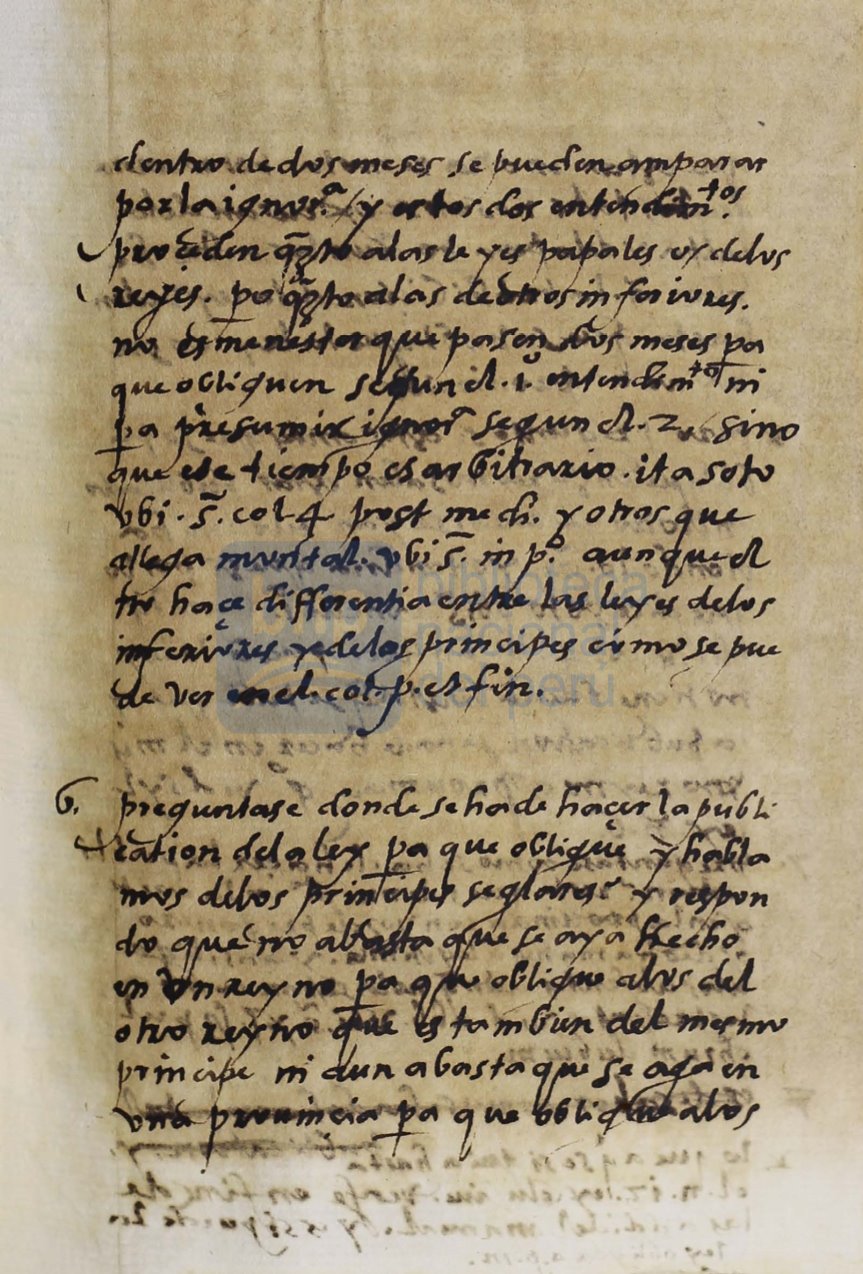 dentro de dos meses se pueden amparar
por la ignor.ª / y estos dos entendim.tos
proceden qto a las leyes papales o / delos
reyes. po qto alas de otros inferiores.
no es menester que pasen dos meses pa
que obliguen segun el .1.º entendim.to ni
pa presumir ignor.ª segun el .2. sino
que ese tiempo es arbitrario. ita soto
vbi . s̃. col. 4 post medi. y otros que
allega montal. vbi s̃. in p.º aunque el
no haçe differentia entre las leyes delos
inferiores y e delos principes como se pue
de ver en el. col. p. et fin.
6. preguntase donde se ha de haçer la publi
cation dela ley pa que obligue y habla
mos delos principes seglares y respon
do que no abasta que se aya hecho
en vn reyno pa que oblique alos del
otro reyno que es tambien del mesmo
principe ni aun abasta que se aga en
vna prouinçia pa que oblique alos
biblioteca
nacional
del perú